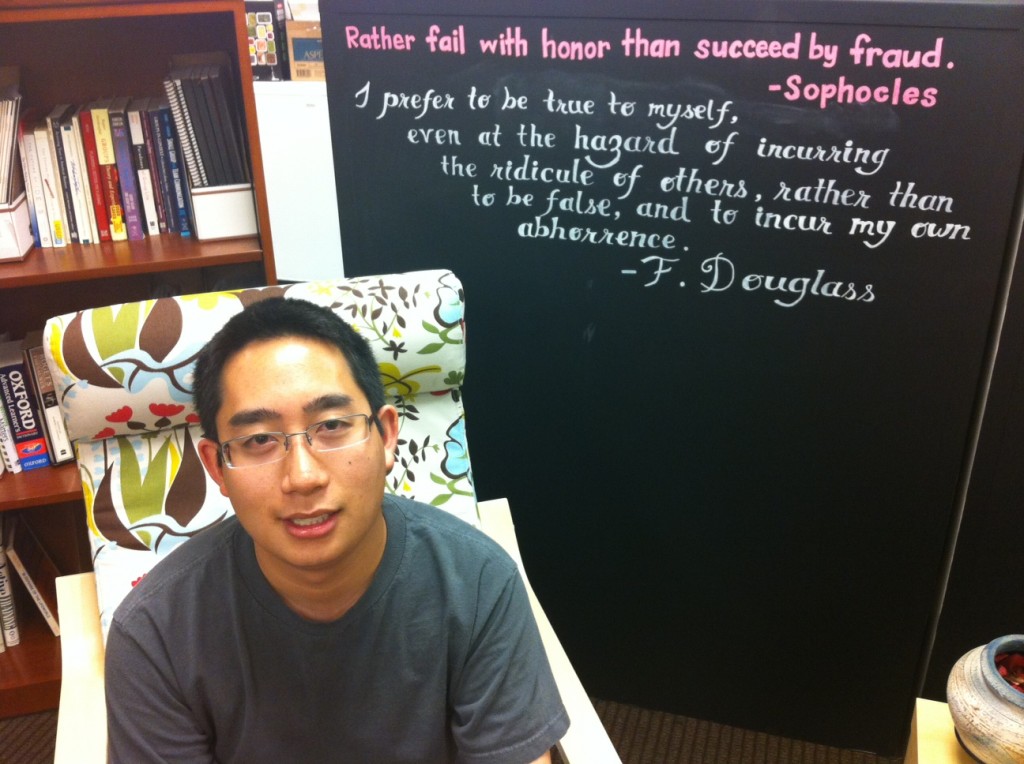 Rather fail with honor than succeed by fraud.
-Sophocles
I prefer to be true to myself,
even at the hazard of incurring
the ridicule of others, rather than
to be false, and to incur my own
abhorrence.
-F. Douglass
OXFORD
Advanced Learner's
OXFORD